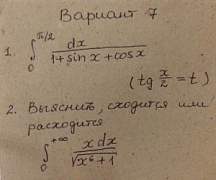 Вариант 7
1. ∫₀^(π/2) dx / (1 + sin x + cos x)
(tg x/2 = t)
2. Выяснить, сходится или
расходится
∫₀^(+∞) x dx / √(x⁶ + 1)